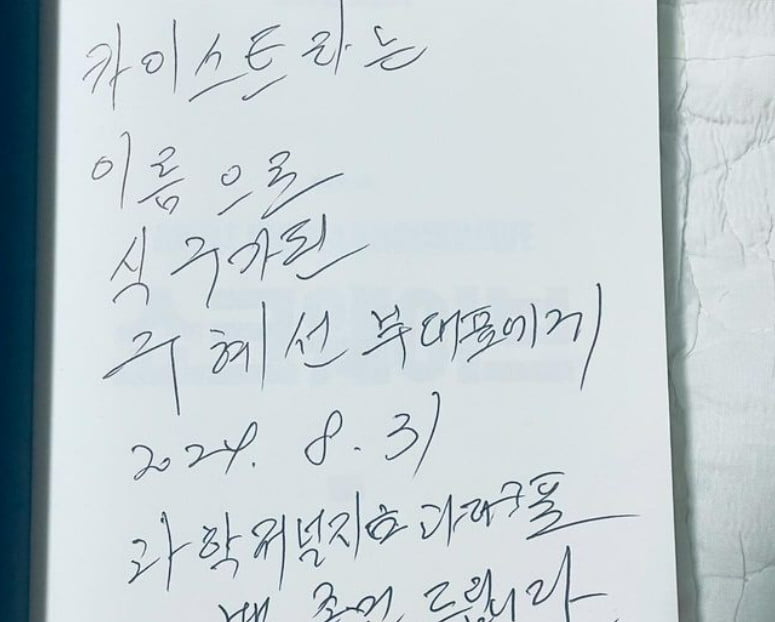 카이스트라는
이름으로
식구가된
구혜선 부대표에게
2024. 8. 31
과학저널지음
드립니다